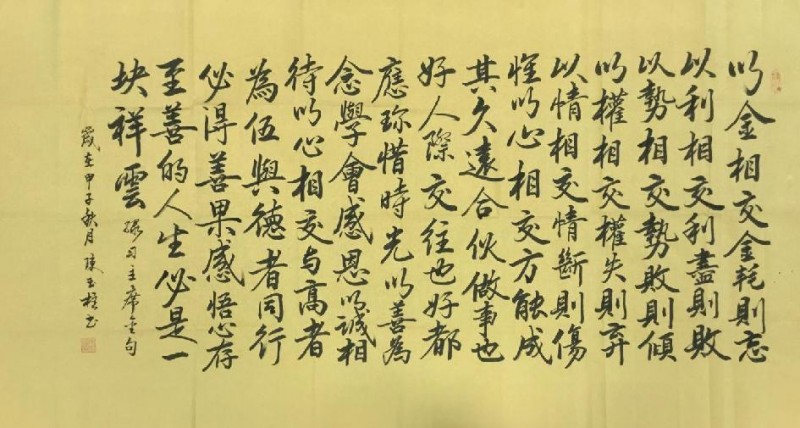 以金相交金耗則忘
以利相交利盡則敗
以勢相交勢敗則傾
以權相交權失則弃
以情相交情斷則傷
惟以心相交方能成
其久遠合伙做事也
好人際交往也好都
應珎惜時光以善為
念學會感恩以誠相
待以心相交与高者
為伍與德者同行
必得善果感悟心存
至善的人生必是一
块祥雲
录习主席金句
歲在甲子秋月陳玉柱书